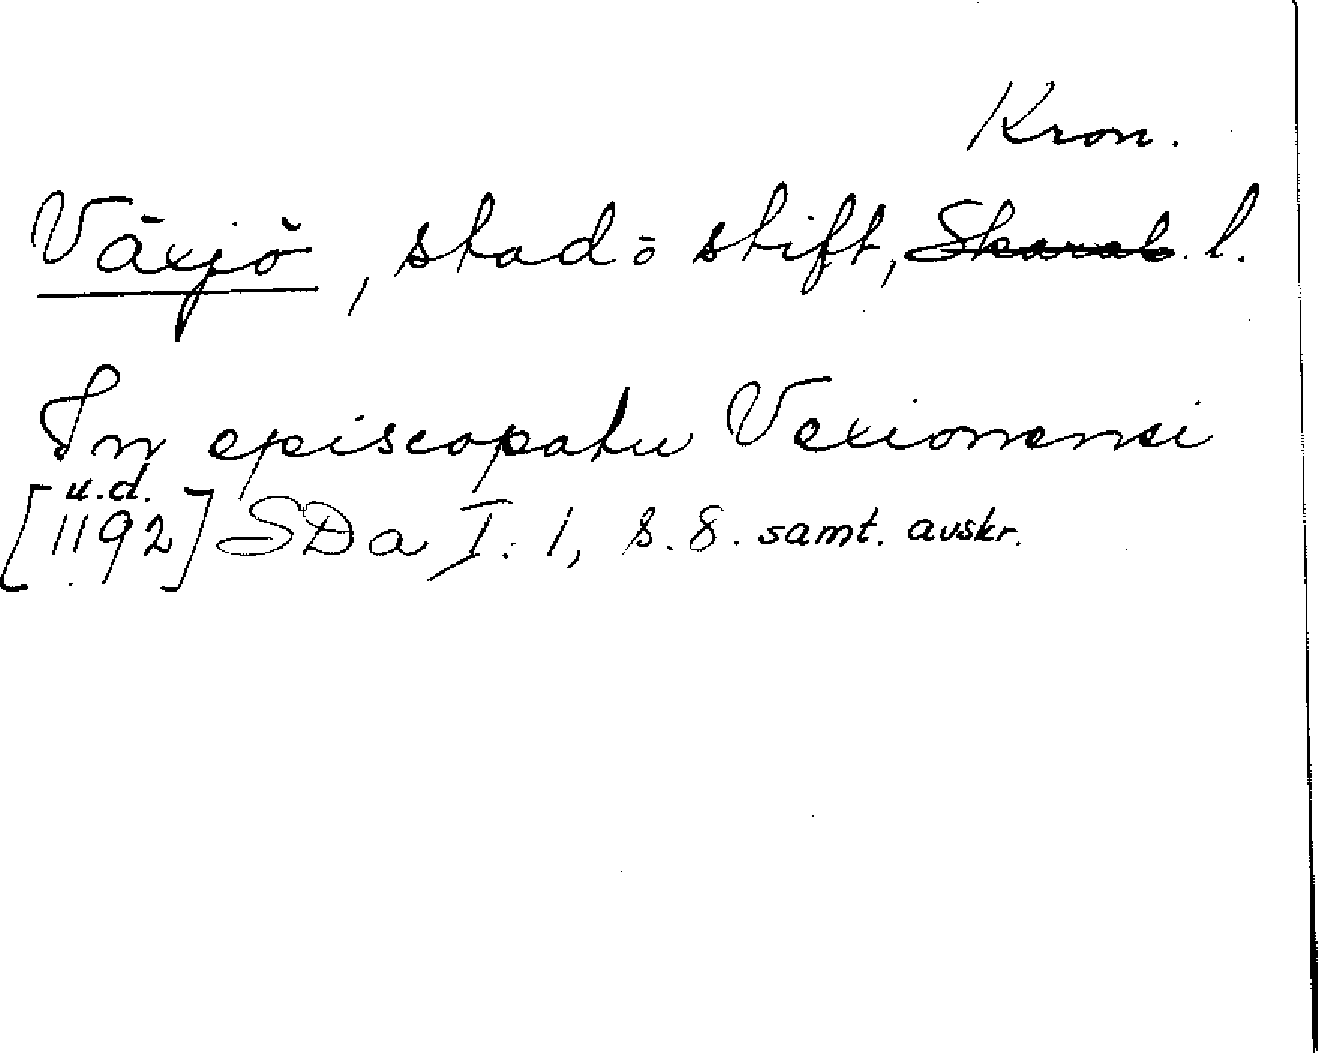 Kron.
Växjö, stad o stift, Skarab. l.
In episcopatu Vexionensi
u.d.
[1192] SDa I:1, s. 8. samt. avskr.